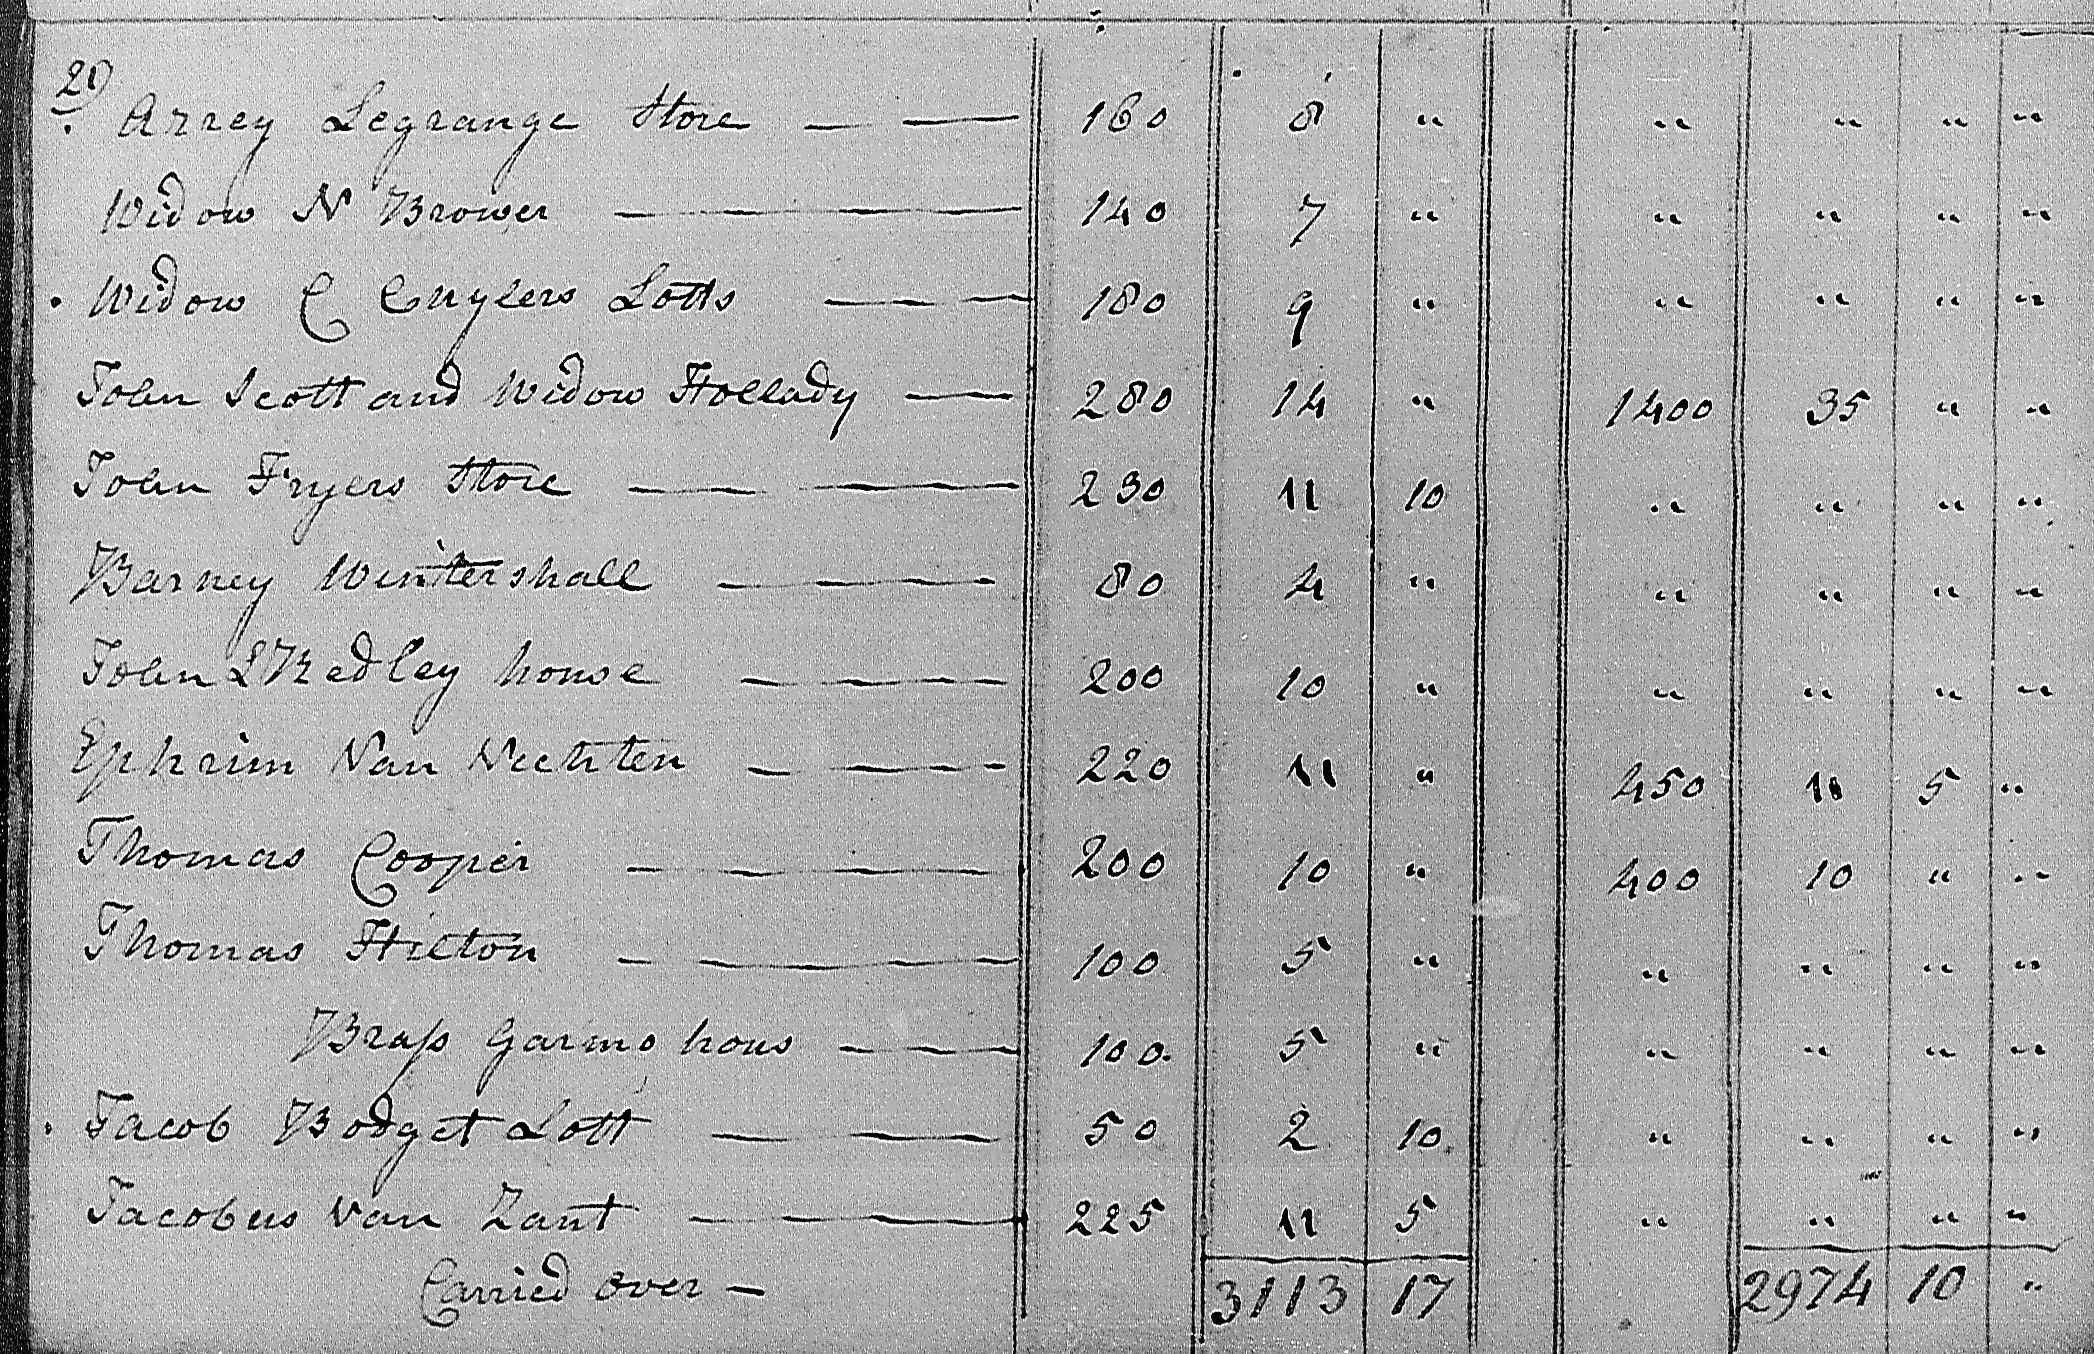 20
Arrey Legrange Store — — 160 8 " " " " "
Widow N Brower — — — 140 7 " " " " "
Widow C Cuylers Lotts — — 180 9 " " " " "
John Scott and Widow Hollady — 280 14 " 1400 35 " "
John Fryers Store — — 230 11 10 " " " "
Barney Wintershall — — — 80 4 " " " " "
John Bedley house — — — 200 10 " " " " "
Ephrim Van Vechten — — — 220 11 " 450 11 5 "
Thomas Cooper — — — 200 10 " 400 10 " "
Thomas Hilton — — — 100 5 " " " " "
Brass Garmo hous — — — 100 5 " " " " "
Jacob Bodget Lott — — — 50 2 10 " " " "
Jacobus Van Zant — — — 225 11 5 " " " "
Carried over — 3113 17 2974 10 "